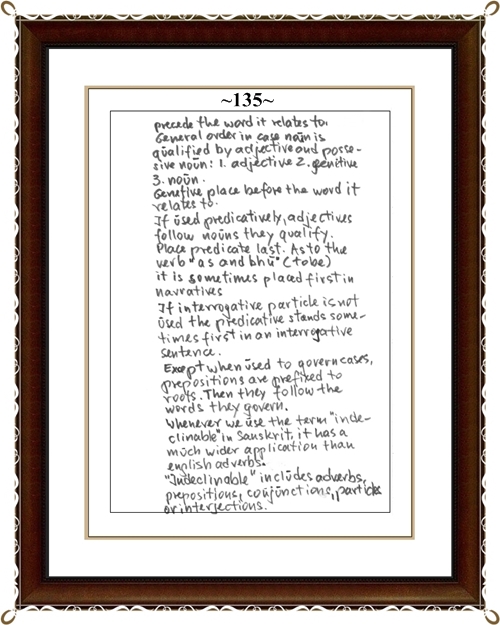 ~135~
precede the word it relates to.
General order in case noūn is
qūalified by adjective and posse-
sive noūn: 1. adjective 2. genitive
3. noūn.
Genitive place before the word it
relates to.
If ūsed predicatively, adjectives
follow noūns they qualify.
Place predicate last. As to the
verb "as and bhū" (to be)
it is sometimes placed first in
narratives
If interrogative particle is not
ūsed the predicative stands some-
times first in an interrogative
sentence.
Except when ūsed to govern cases,
prepositions are prefixed to
roots. Then they follow the
words they govern.
Whenever we use the term "inde-
clinable" in Sanskrit, it has a
mūch wider application than
english adverbs.
"Indeclinable" inclūdes adverbs,
prepositions, conjūnctions, particles
or interjections.